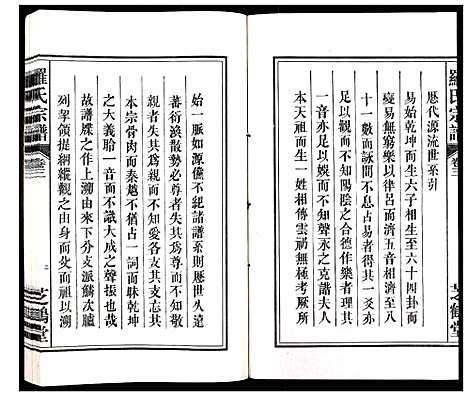 羅氏宗譜
卷三
芝鶴堂
歷代源流世系引
易始乾坤而生六子相生至六十四卦而
變易無窮樂以律呂而濟五音相濟至八
十一數而詠間不息占易者得其一爻亦
足以觀而不知陽陰之合德作樂者理其
一音亦足以娛而不知聲汞之克諧夫人
本天祖而生一姓相傳雲礽無極考厥所
始一脈如源儻不紀諸譜系則歷世久遠
蕃衍渙散勢必尊者失其為尊而不知敬
親者失其為親而不知愛各支其支忘其
本宗骨肉而秦越不猶占一詞而昧乾坤
之大義聆一音而不識大成之聲振也哉
故譜牒之作上溯由來下分支派鱗次臚
列挈領提綱縱觀之由身而父而祖以溯
羅氏宗譜
卷三
二
芝鶴堂